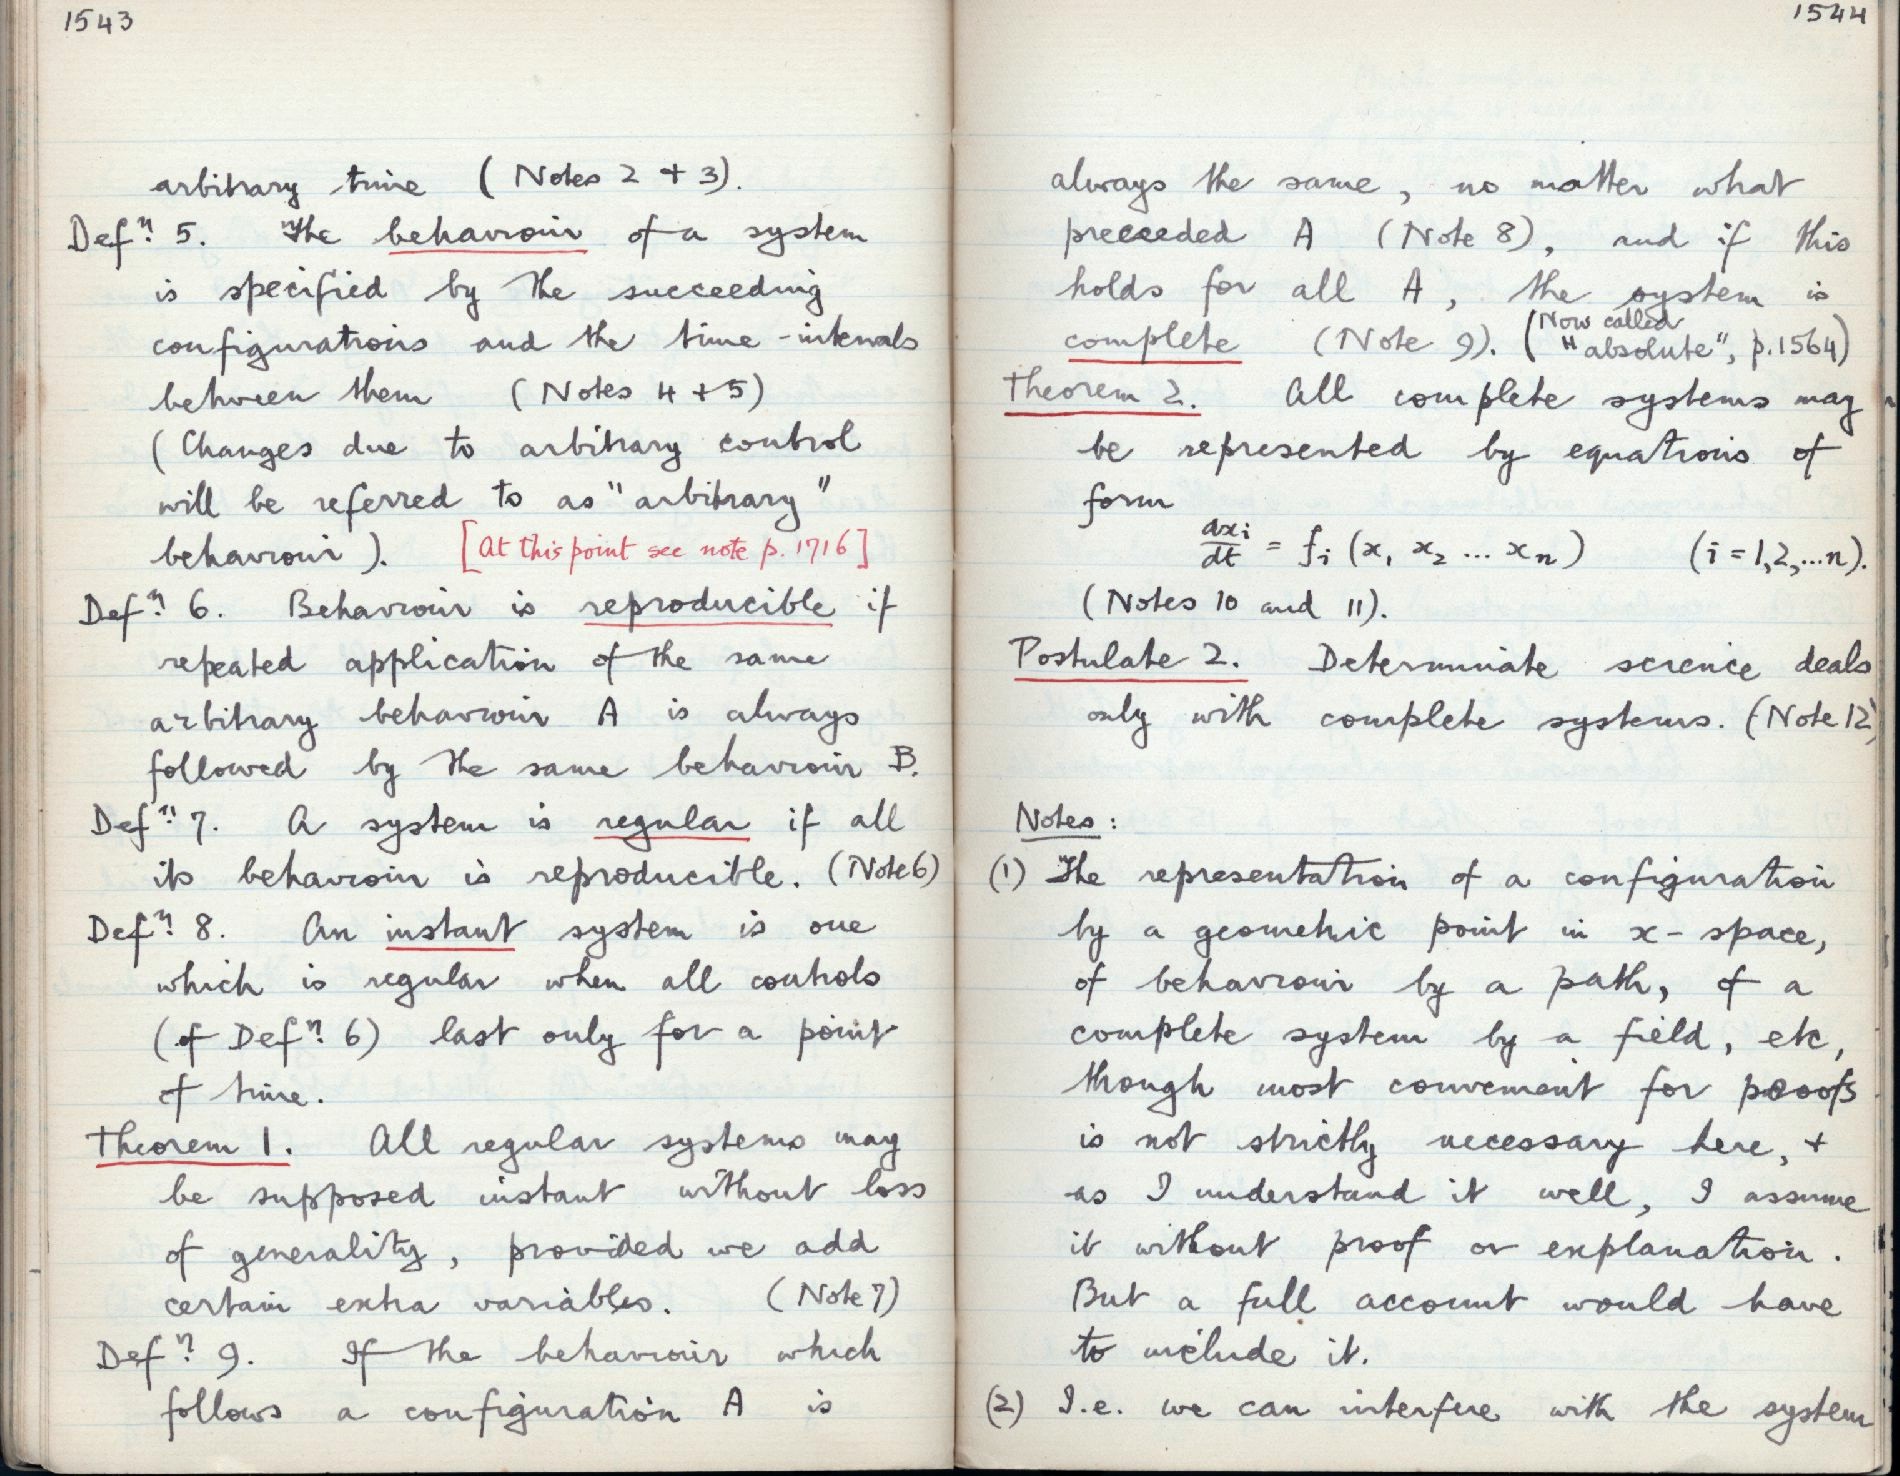 1543
arbitrary time (Notes 2 + 3).
Defⁿ. 5. The behaviour of a system
is specified by the succeeding
configurations and the time-intervals
between them (Notes 4 + 5)
(Changes due to arbitrary control
will be referred to as "arbitrary"
behaviour). [At this point see note p. 1716]
Defⁿ. 6. Behaviour is reproducible if
repeated application of the same
arbitrary behaviour A is always
followed by the same behaviour B.
Defⁿ. 7. A system is regular if all
its behaviour is reproducible. (Note 6)
Defⁿ. 8. An instant system is one
which is regular when all controls
(of Defⁿ. 6) last only for a point
of time.
Theorem 1. All regular systems may
be supposed instant without loss
of generality, provided we add
certain extra variables. (Note 7)
Defⁿ. 9. If the behaviour which
follows a configuration A is
1544
always the same, no matter what
preceeded A (Note 8), and if this
holds for all A, the system is
complete (Note 9). (Now called
"absolute", p.1564)
Theorem 2. All complete systems may
be represented by equations of
form
dxi/dt = fi (x1 x2 ... xn) (i = 1,2,...n).
(Notes 10 and 11).
Postulate 2. Determinate science deals
only with complete systems. (Note 12)
Notes:
(1) The representation of a configuration
by a geometric point in x-space,
of behaviour by a path, of a
complete system by a field, etc,
though most convenient for proofs
is not strictly necessary here, +
as I understand it well, I assume
it without proof or explanation.
But a full account would have
to include it.
(2) I.e. we can interfere with the system